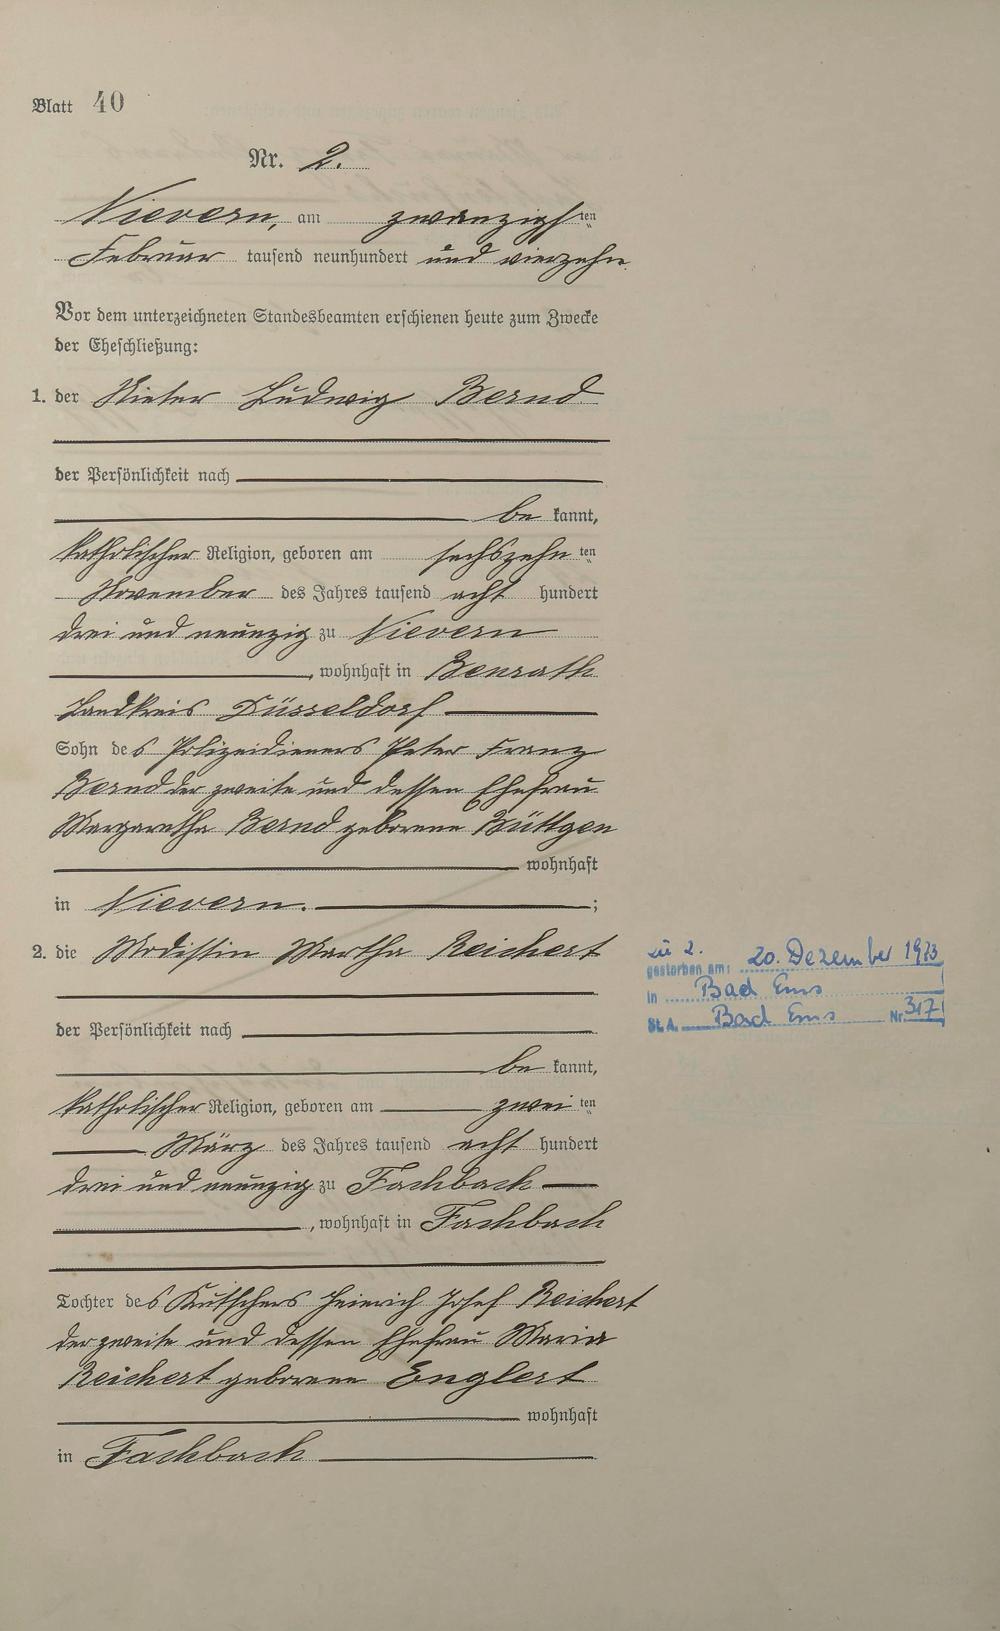 Blatt 40
Nr. 2.
Nievern, am zwanzigsten
Februar tausend neunhundert und vierzehn
Vor dem unterzeichneten Standesbeamten erschienen heute zum Zwecke
der Eheschließung:
1. der Nieter Ludwig Bernd
der Persönlichkeit nach
be kannt,
katholischer Religion, geboren am sechszehn ten
November des Jahres tausend acht hundert
drei und neunzig zu Nievern
, wohnhaft in Benrath
Landkreis Düsseldorf
Sohn des Polizeidieners Peter Franz
Bernd der zweite und dessen Ehefrau
Margaretha Bernd geborene Büttgen
wohnhaft
in Nievern. ;
2. die Modistin Martha Reichert
zu 2.
gestorben am: 20. Dezember 1973
in Bad Ems
St. A. Bad Ems Nr. 317
der Persönlichkeit nach
be kannt,
katholischer Religion, geboren am zwei ten
März des Jahres tausend acht hundert
drei und neunzig zu Fachbach
, wohnhaft in Fachbach
Tochter des Kutschers Heinrich Josef Reichert
der zweite und dessen Ehefrau Maria
Reichert geborene Englert
wohnhaft
in Fachbach